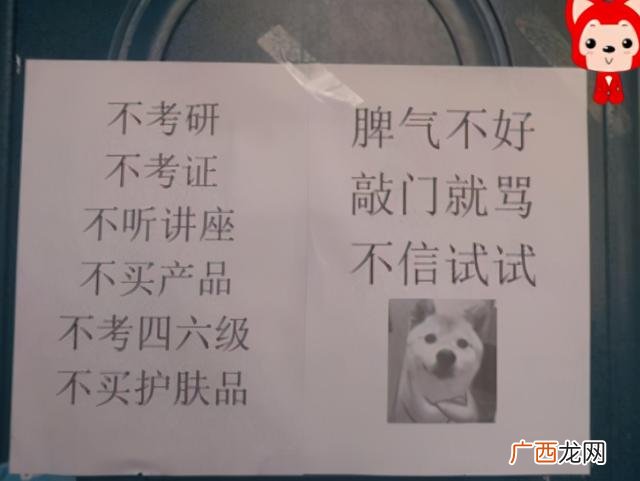 不考研
不考证
不听讲座
不买产品
不考四六级
不买护肤品
脾气不好
敲门就骂
不信试试
广西龙网